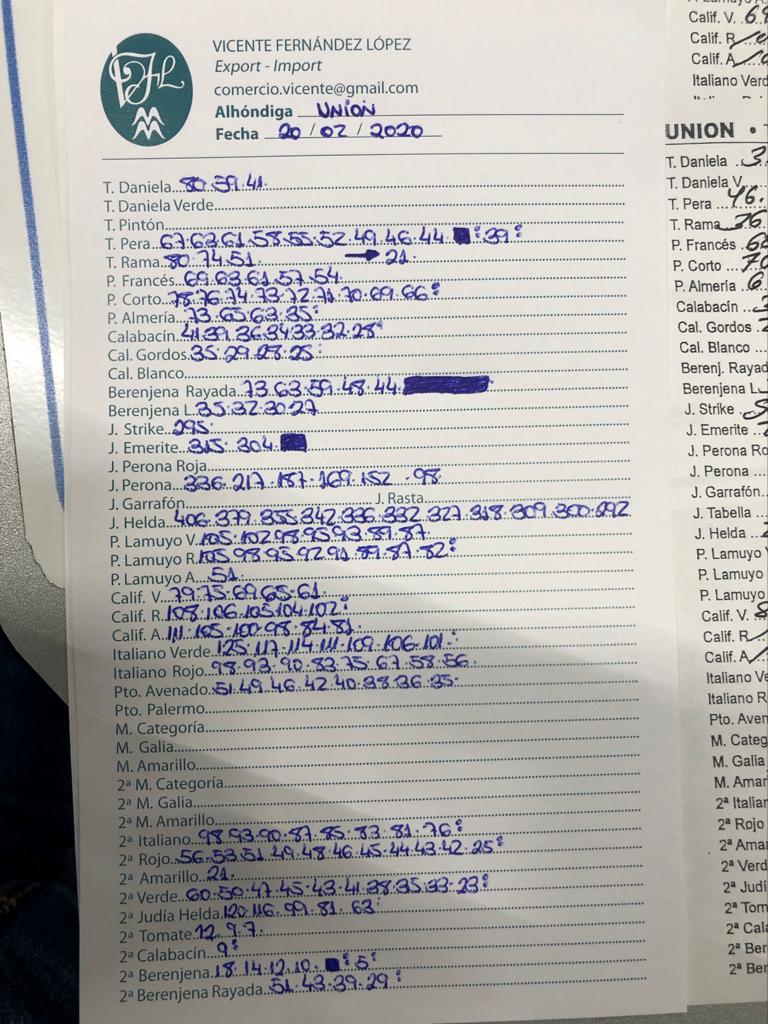 VICENTE FERNÁNDEZ LÓPEZ
Export - Import
comercio.vicente@gmail.com
Alhóndiga UNION
Fecha 20/02/2020
T. Daniela 80.59.41.
T. Daniela Verde
T. Pintón
T. Pera 67.63.61.58.55.52.49.46.44. : 39:
T. Rama 80.74.51. → 21.
P. Francés 69.63.61.57.54
P. Corto 78.76.74.73.72.71.70.69.66:
P. Almería 73.65.63.35:
Calabacín 41.39.36.34.33.32.28
Cal. Gordos 35.29.28.25:
Cal. Blanco
Berenjena Rayada 73.63.59.48.44.
Berenjena L. 35.32.30.27
J. Strike 295.
J. Emerite 315. 304.
J. Perona Roja
J. Perona 336.217.187.169.152.98
J. Garrafón J. Rasta
J. Helda 406.379.355.342.336.332.327.318.309.300.292
P. Lamuyo V. 105.102.98.95.93.89.87
P. Lamuyo R. 105.98.95.92.91.89.87.82:
P. Lamuyo A. 51.
Calif. V. 79.75.69.65.61.
Calif. R. 108.106.105.104.102:
Calif. A. 111.105.100.98.84.81.
Italiano Verde 125.117.114.111.109.106.101.
Italiano Rojo 98.93.90.83.75.67.58.56
Pto. Avenado 51.49.46.42.40.38.36.35.
Pto. Palermo
M. Categoría
M. Galia
M. Amarillo
2ª M. Categoría
2ª M. Galia
2ª M. Amarillo
2ª Italiano 98.93.90.87.85.83.81.76:
2ª Rojo 56.53.51.49.48.46.45.44.43.42.25:
2ª Amarillo 21.
2ª Verde 60.50.47.45.43.41.38.35.33.23:
2ª Judía Helda 120.116.99.81.63
2ª Tomate 12.9.7.
2ª Calabacín 9:
2ª Berenjena 18.14.12.10. : 5:
2ª Berenjena Rayada 51.43.39.29:
Calif. V.
Calif. R
Calif. A
Italiano Verd
UNION •
T. Daniela
T. Daniela V
T. Pera 46.
T. Rama
P. Francés
P. Corto
P. Almería
Calabacín
Cal. Gordos
Cal. Blanco
Berenj. Rayad
Berenjena L
J. Strike
J. Emerite
J. Perona Ro
J. Perona
J. Garrafón
J. Tabella
J. Helda
P. Lamuyo
P. Lamuyo
P. Lamuyo
Calif. V.
Calif. R
Calif. A
Italiano Ve
Italiano R
Pto. Aven
M. Categ
M. Galia
M. Amar
2ª Italian
2ª Rojo
2ª Ama
2ª Verd
2ª Judí
2ª Tom
2ª Cala
2ª Ber
2ª Ber